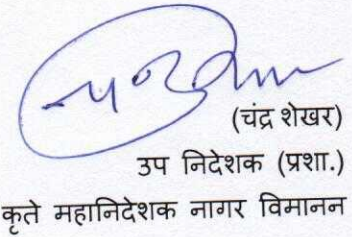 (चंद्र शेखर)
उप निदेशक (प्रशा.)
कृते महानिदेशक नागर विमानन